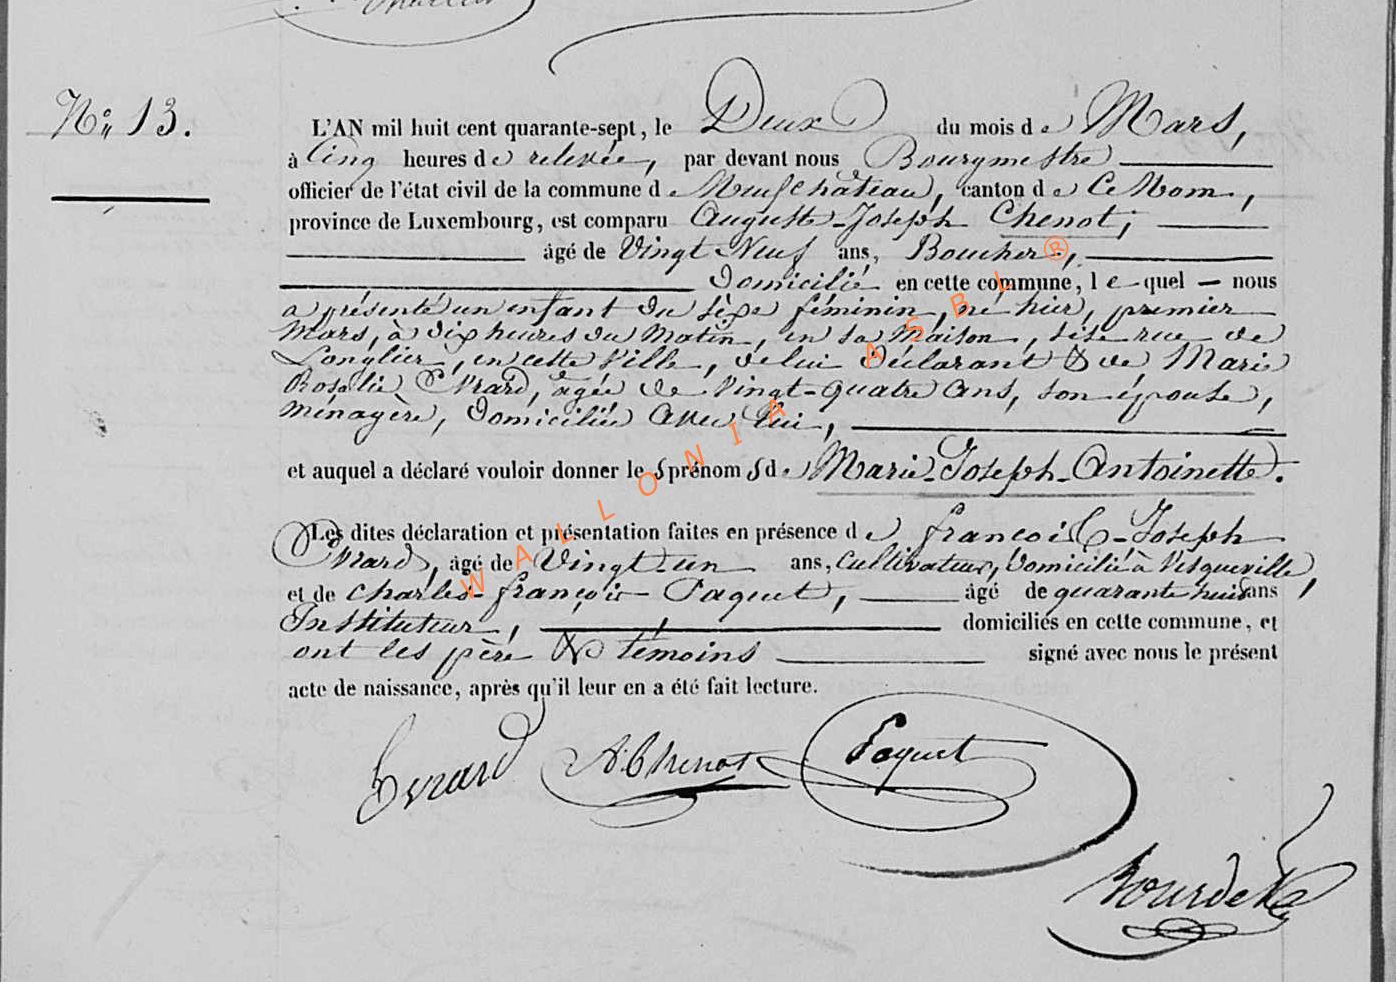 N° 13.
L'AN mil huit cent quarante-sept, le Deux du mois de Mars,
à Cinq heures de relevée, par devant nous Bourgmestre
officier de l'état civil de la commune de Neufchâteau, canton de Ce Nom,
province de Luxembourg, est comparu Auguste-Joseph Chenot,
âgé de Vingt Neuf ans, Boucher,
Domicilié en cette commune, le quel nous
a présenté un enfant du sèxe féminin, né hier, premier
Mars, à dix heures du Matin, en sa Maison, sise rue de
Longlier, en cette Ville, de lui déclarant & de Marie
Rosalie Evrard, âgée de Vingt-quatre ans, son épouse,
ménagère, domiciliée avec lui,
et auquel a déclaré vouloir donner les prénoms de Marie-Joseph-Antoinette.
Les dites déclaration et présentation faites en présence de François-Joseph
Evrard, âgé de Vingt-un ans, Cultivateur, Domicilié à Vesqueville,
et de Charles-François Paquet, âgé de quarante huit ans,
Instituteur, domiciliés en cette commune, et
ont les père & témoins signé avec nous le présent
acte de naissance, après qu'il leur en a été fait lecture.
Evrard A. Chenot Paquet
WALLONIA ASBL ®